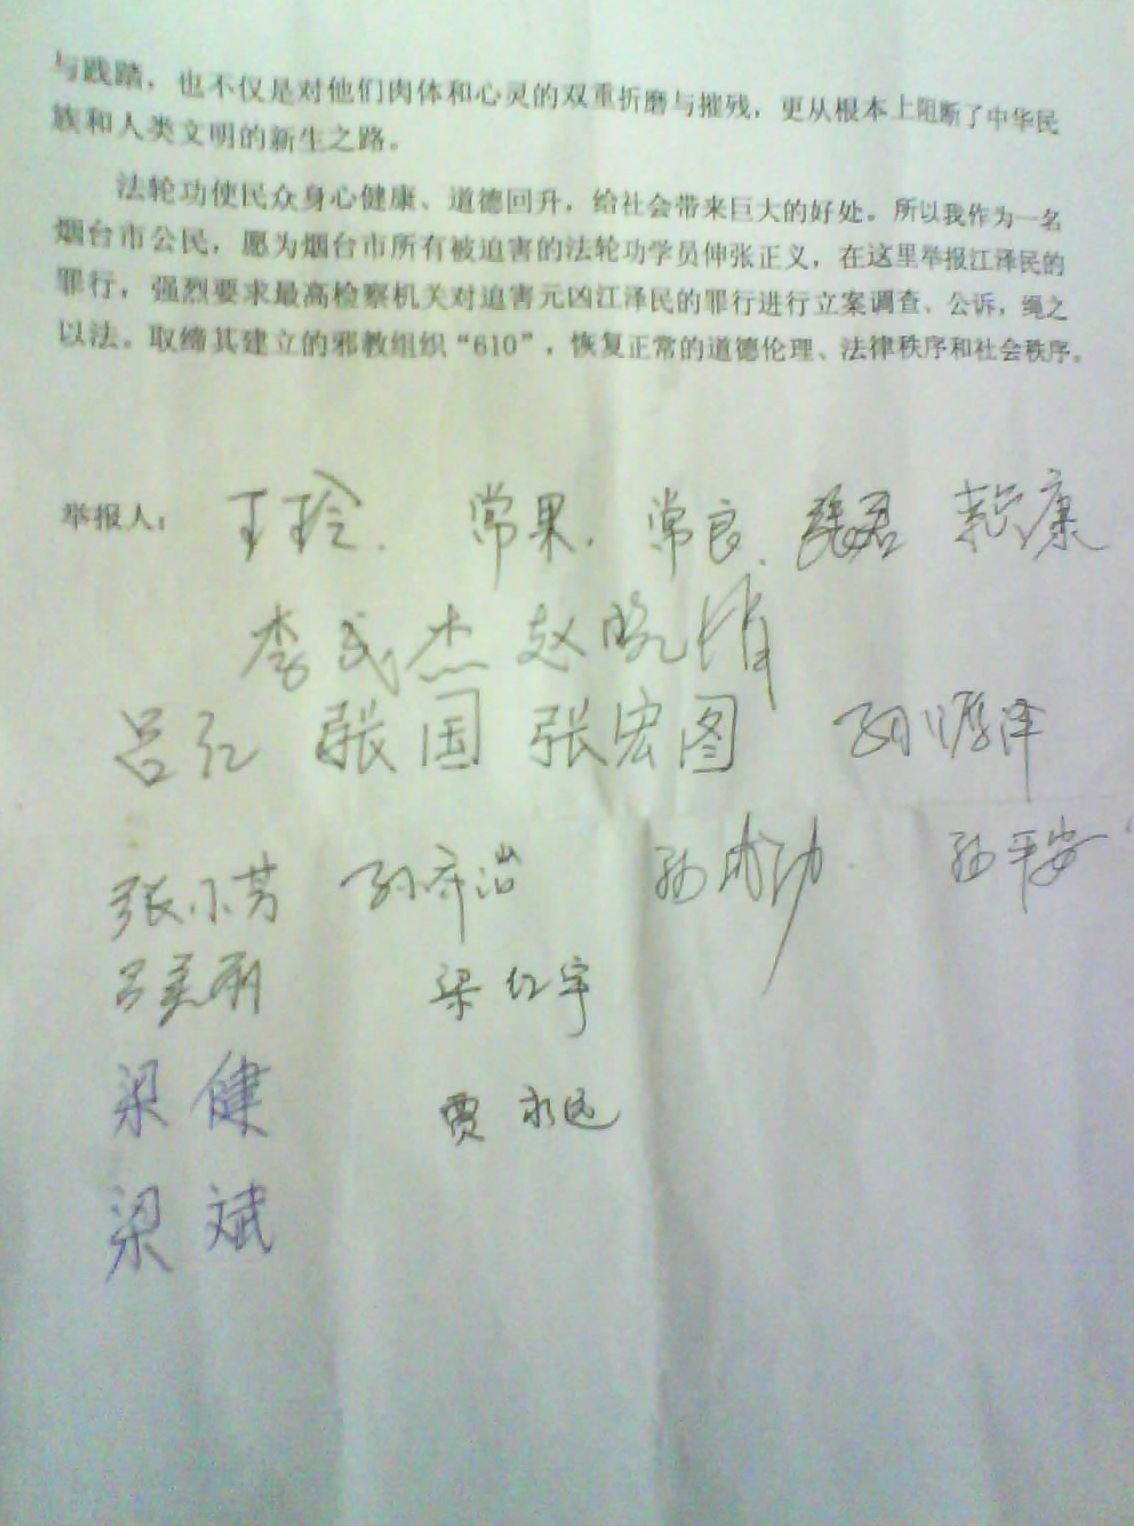 与践踏，也不仅是对他们肉体和心灵的双重折磨与摧残，更从根本上阻断了中华民
族和人类文明的新生之路。
法轮功使民众身心健康、道德回升，给社会带来巨大的好处。所以我作为一名
烟台市公民，愿为烟台市所有被迫害的法轮功学员伸张正义，在这里举报江泽民的
罪行，强烈要求最高检察机关对迫害元凶江泽民的罪行进行立案调查、公诉，绳之
以法。取缔其建立的邪教组织“610”，恢复正常的道德伦理、法律秩序和社会秩序。
举报人： 王玲. 常果. 常良. 张君 康
李武杰 赵晓
吕红 张国 张宏图 孙泽
张小芳 孙守治 孙成功 孙平安
吕美丽 梁红宇
梁健 贾永远
梁斌